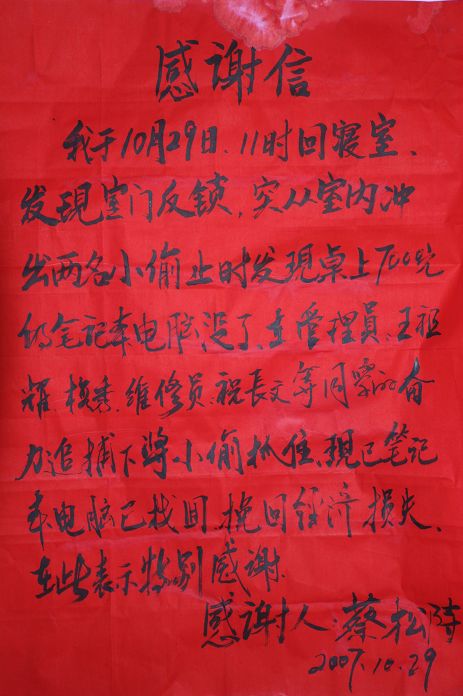 感谢信
我于10月29日、11时回寝室、
发现室门反锁，突从室内冲
出两名小偷 此时发现桌上7000元
的笔记本电脑没了，在管理员、王祖
耀 维修员、祝長文等同学的奋
力追捕下将小偷抓住、現已笔记
本电脑已找回，挽回经济损失、
在此表示特别感谢.
感谢人：蔡松
2007.10.29